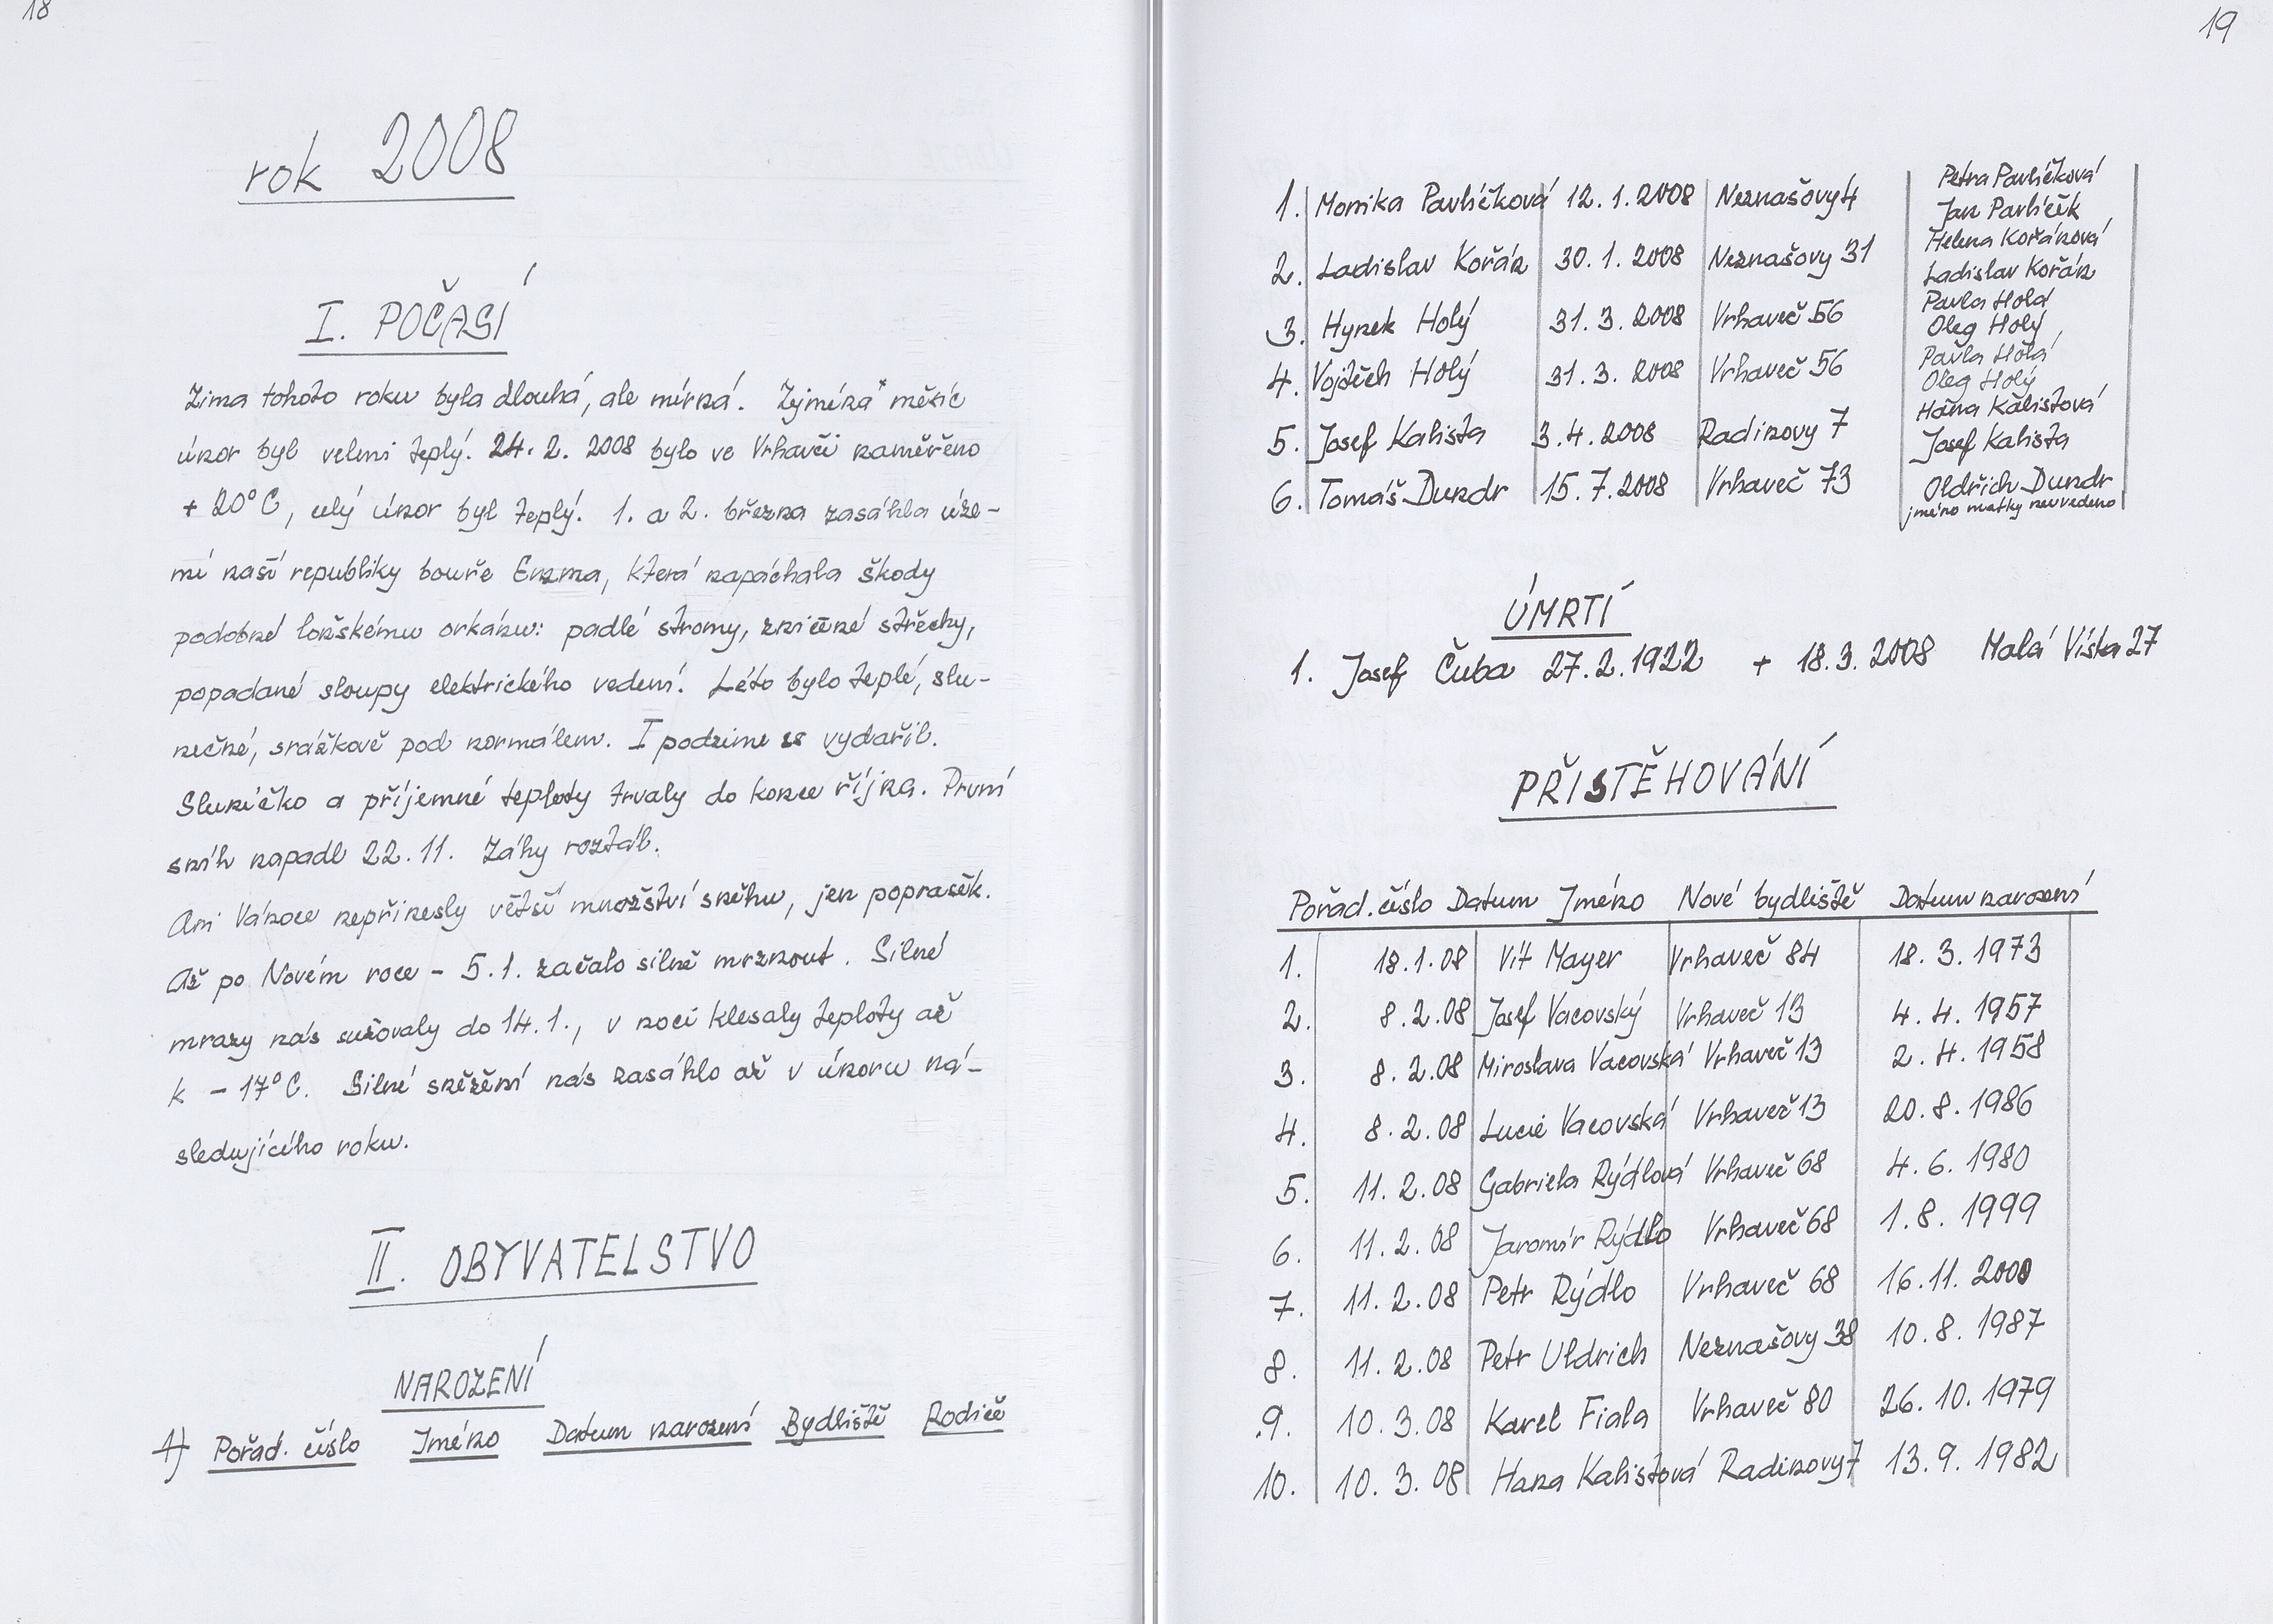 18
rok 2008
I. POČASÍ
Zima tohoto roku byla dlouhá, ale mírná. Zejména měsíc
únor byl velmi teplý. 24. 2. 2008 bylo ve Vrhavči naměřeno
+ 20°C, celý únor byl teplý. 1. a 2. března zasáhla úze-
mí naší republiky bouře Emma, která napáchala škody
podobné loňskému orkánu: padlé stromy, zničené střechy,
popadané sloupy elektrického vedení. Léto bylo teplé, slu-
nečné, srážkově pod normálem. I podzim se vydařil.
Sluníčko a příjemné teploty trvaly do konce října. První
sníh napadl 22.11. Záhy roztál.
Ani Vánoce nepřinesly větší množství sněhu, jen poprašek.
Až po Novém roce - 5.1. začalo silně mrznout. Silné
mrazy nás sužovaly do 14.1., v noci klesaly teploty až
k - 17°C. Silné sněžení nás zasáhlo až v únoru ná-
sledujícího roku.
II. OBYVATELSTVO
NAROZENÍ
1) Pořad. číslo Jméno Datum narození Bydliště Rodiče
19
1. Monika Pavlíčková 12. 1. 2008 Neznašovy 4 Petra Pavlíčková
Jan Pavlíček
2. Ladislav Kořán 30. 1. 2008 Neznašovy 31 Helena Kořánová
Ladislav Kořán
3. Hynek Holý 31. 3. 2008 Vrhaveč 56 Pavla Holá
Oleg Holý
4. Vojtěch Holý 31. 3. 2008 Vrhaveč 56 Pavla Holá
Oleg Holý
5. Josef Kalista 3. 4. 2008 Radinovy 7 Hana Kalistová
Josef Kalista
6. Tomáš Dundr 15. 7. 2008 Vrhaveč 73 Oldřich Dundr
jméno matky neuvedeno
ÚMRTÍ
1. Josef Čuba 27. 2. 1922 + 18. 3. 2008 Malá Víska 27
PŘISTĚHOVÁNÍ
Pořad. číslo Datum Jméno Nové bydliště Datum narození
1. 18.1.08 Vít Mayer Vrhaveč 84 18. 3. 1973
2. 8.2.08 Josef Vacovský Vrhaveč 13 4. 4. 1957
3. 8.2.08 Miroslava Vacovská Vrhaveč 13 2. 4. 1958
4. 8.2.08 Lucie Vacovská Vrhaveč 13 20. 8. 1986
5. 11.2.08 Gabriela Rýdlová Vrhaveč 68 4. 6. 1980
6. 11.2.08 Jaromír Rýdlo Vrhaveč 68 1. 8. 1999
7. 11.2.08 Petr Rýdlo Vrhaveč 68 16. 11. 2000
8. 11.2.08 Petr Uldrich Neznašovy 38 10. 8. 1987
9. 10.3.08 Karel Fiala Vrhaveč 80 26. 10. 1979
10. 10.3.08 Hana Kalistová Radinovy 7 13. 9. 1982